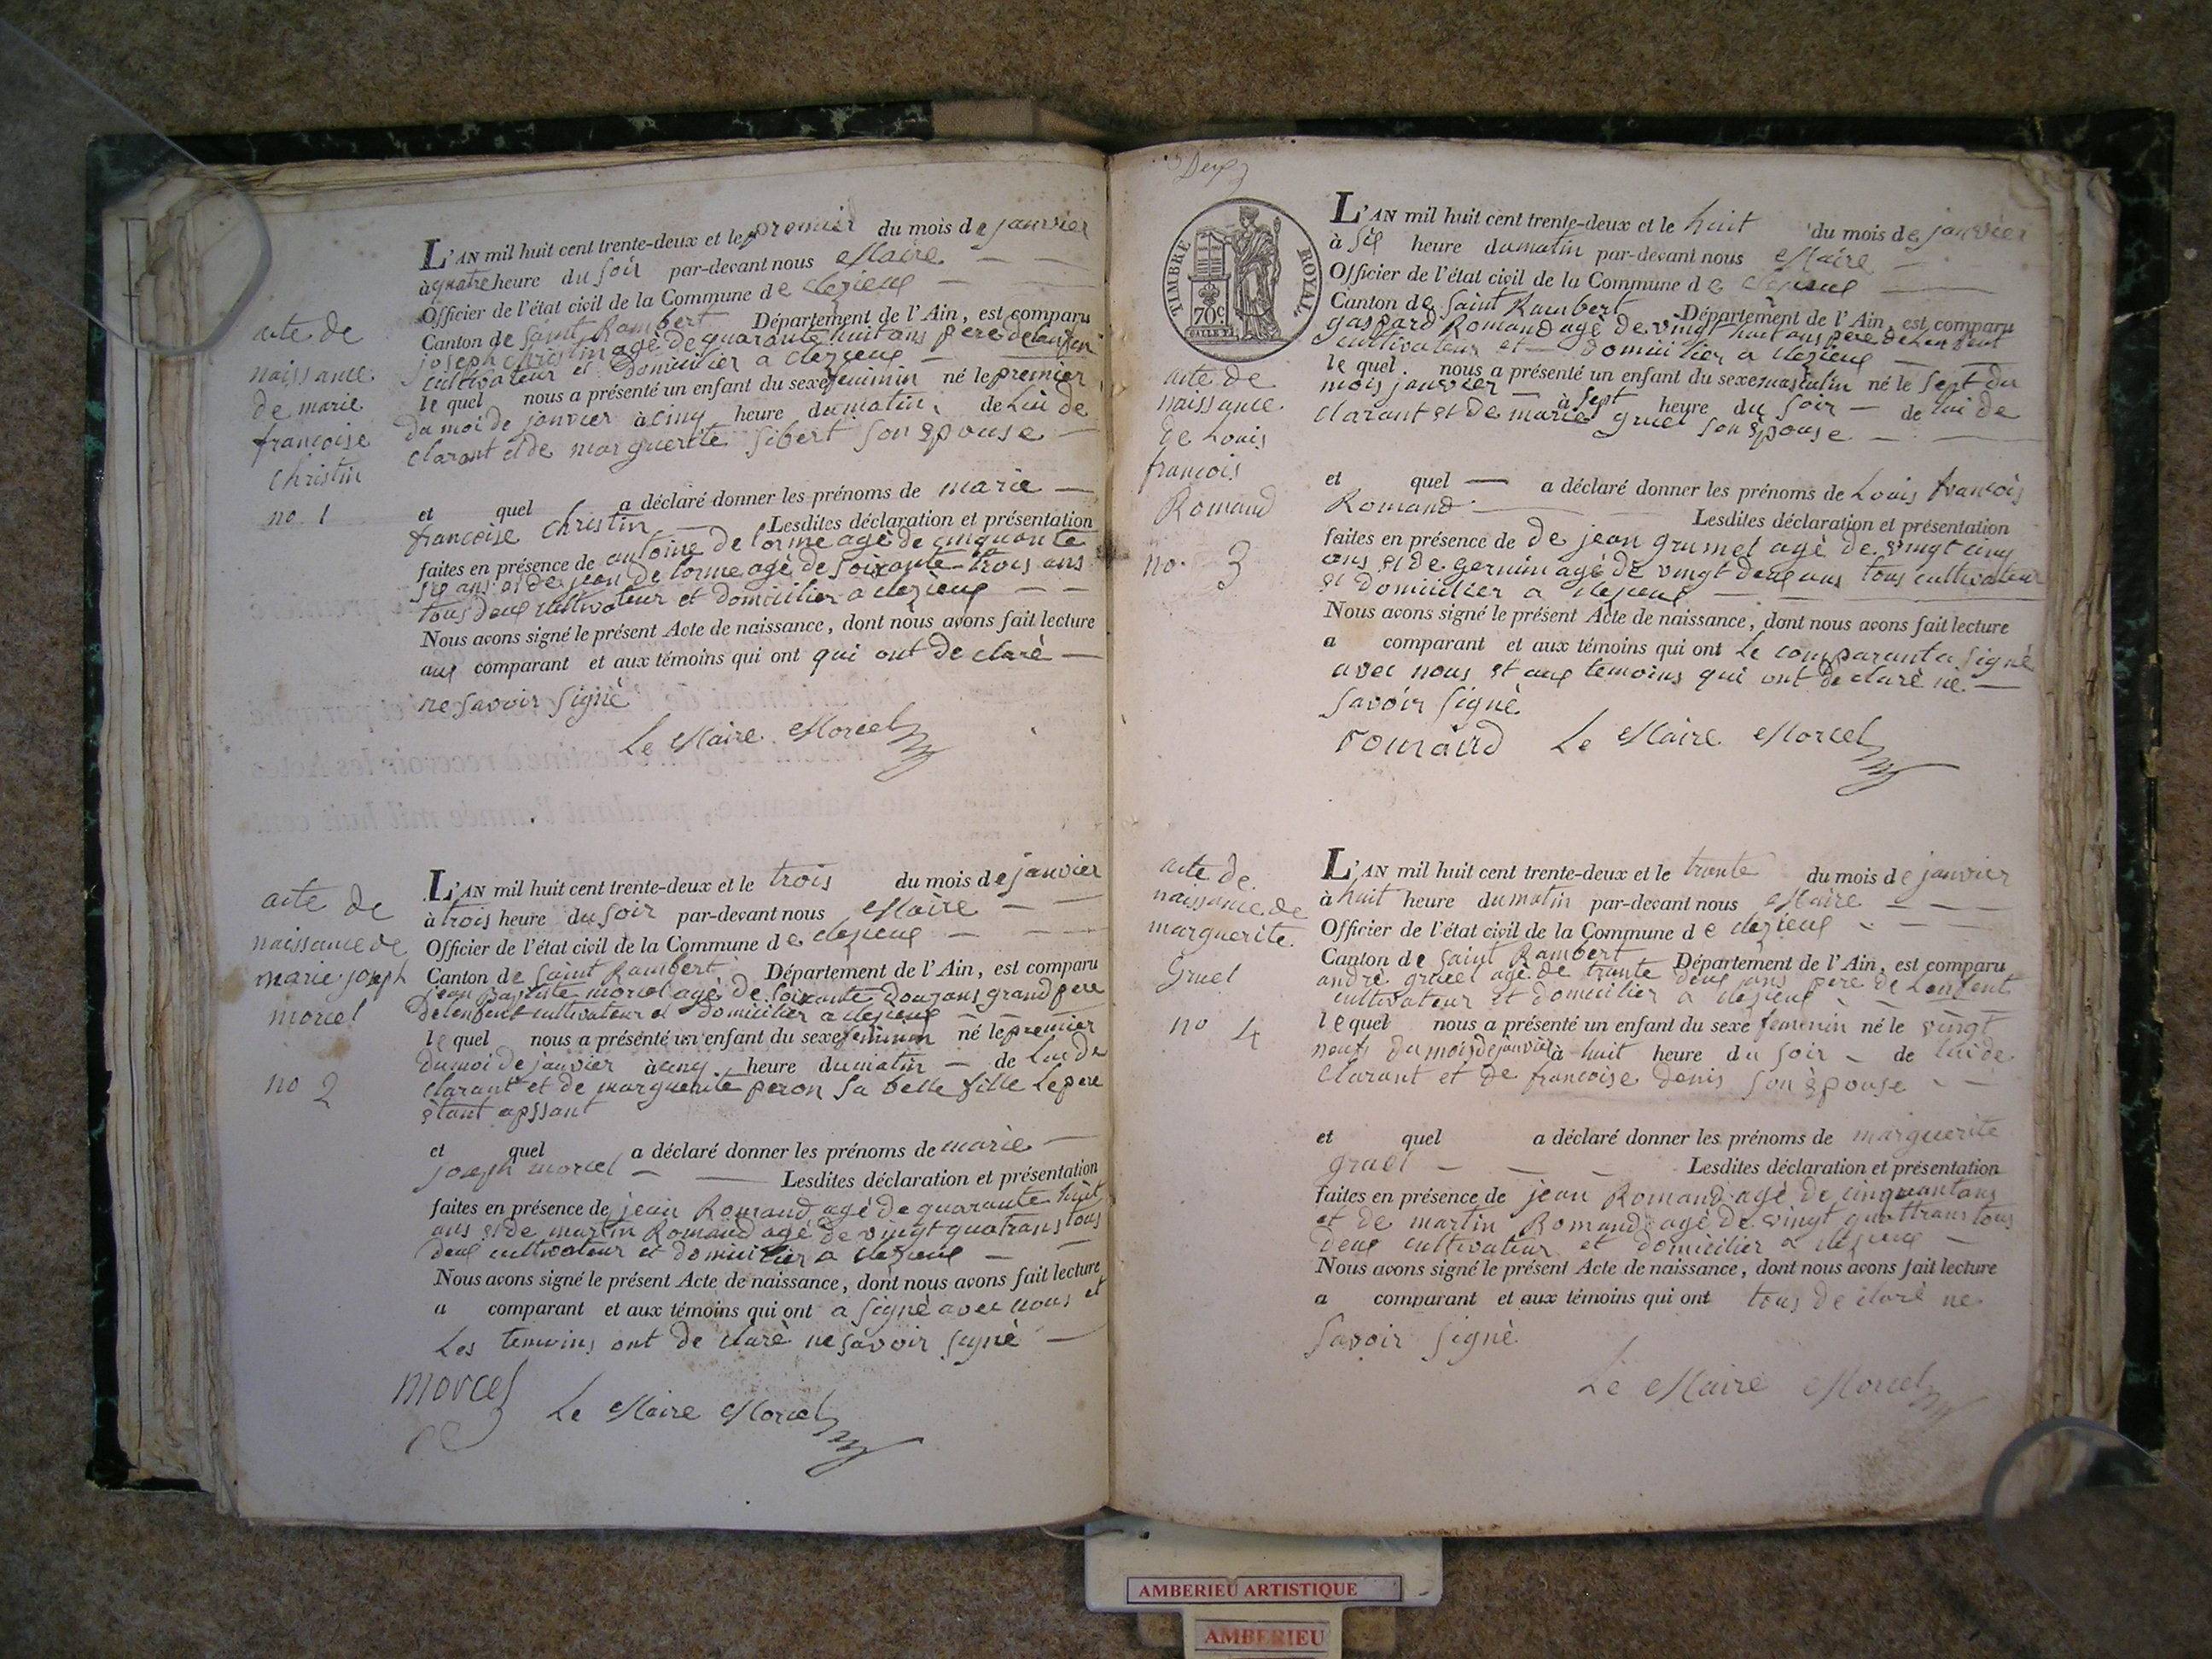 acte de
naissance
de marie
francoise
christin
no 1
L'AN mil huit cent trente-deux et le premier du mois de janvier
à quatre heure du soir par-devant nous Maire
Officier de l'état civil de la Commune de clezieux
Canton de Saint Rambert Département de l'Ain, est comparu
joseph christin agé de quarante huit ans pere de lanfen
cultivateur et domicilier a clezieux
le quel nous a présenté un enfant du sexe feminin né le premier
du moi de janvier à cinq heure du matin de lui de
clarant et de marguerite sibert son épouse
et quel a déclaré donner les prénoms de marie
francoise christin Lesdites déclaration et présentation
faites en présence de antoine delorme agé de cinquante
six ans et de jean delorme agé de soixante trois ans
tous deux cultivateur et domicilier a clezieux
Nous avons signé le présent Acte de naissance, dont nous avons fait lecture
aux comparant et aux témoins qui ont qui ont de claré
ne savoir signé
Le Maire Morcel
acte de
naissance de
marie joseph
morcel
no 2
L'AN mil huit cent trente-deux et le trois du mois de janvier
à trois heure du soir par-devant nous Maire
Officier de l'état civil de la Commune de clezieux
Canton de Saint Rambert Département de l'Ain, est comparu
jean baptiste morcel agé de soixante douzans grand pere
delenfent cultivateur et domicilier a clezieux
le quel nous a présenté un enfant du sexe feminin né le premier
du moi de janvier à cinq heure du matin de lui de
clarant et de marguerite peron sa belle fille le pere
étant apssant
et quel a déclaré donner les prénoms de marie
joseph morcel Lesdites déclaration et présentation
faites en présence de jean Romand agé de quarante huit
ans et de martin Romand agé de vingt quatrans tous
deux cultivateur et domicilier a clezieux
Nous avons signé le présent Acte de naissance, dont nous avons fait lecture
a comparant et aux témoins qui ont a signé avec nous et
Les temoins ont de claré ne savoir signé
morcel
Le Maire Morcel
Deux
TIMBRE ROYAL
70c
acte de
naissance
de Louis
francois
Romand
no. 3
L'AN mil huit cent trente-deux et le huit du mois de janvier
à six heure du matin par-devant nous Maire
Officier de l'état civil de la Commune de clezieux
Canton de Saint Rambert Département de l'Ain, est comparu
gaspard Romand agé de vingt huit ans pere de Lenfent
cultivateur et domicilier a clezieux
le quel nous a présenté un enfant du sexe masculin né le sept du
mois janvier à sept heure du soir de lui de
clarant et de marie gruel son épouse
et quel a déclaré donner les prénoms de Louis francois
Romand Lesdites déclaration et présentation
faites en présence de de jean grumel agé de vingt cinq
ans et de germin agé de vingt deux ans tous cultivateur
et domicilier a clezieux
Nous avons signé le présent Acte de naissance, dont nous avons fait lecture
a comparant et aux témoins qui ont Le comparant a signé
avec nous et aux temoins qui ont de claré ne
savoir signé
romand Le Maire Morcel
acte de
naissance de
marguerite
Gruel
no 4
L'AN mil huit cent trente-deux et le trente du mois de janvier
à huit heure du matin par-devant nous Maire
Officier de l'état civil de la Commune de clezieux
Canton de Saint Rambert Département de l'Ain, est comparu
andré gruel agé de trante deux ans pere de Lenfent
cultivateur et domicilier a clezieux
le quel nous a présenté un enfant du sexe femenin né le vingt
neuf du mois de janvier à huit heure du soir de lui de
clarant et de francoise denis son épouse
et quel a déclaré donner les prénoms de marguerite
gruel Lesdites déclaration et présentation
faites en présence de jean Romand agé de cinquantans
et de martin Romand agé de vingt quattrans tous
deux cultivateur et domicilier a clezieux
Nous avons signé le présent Acte de naissance, dont nous avons fait lecture
a comparant et aux témoins qui ont tous de claré ne
savoir signé
Le Maire Morcel
AMBERIEU ARTISTIQUE
AMBERIEU